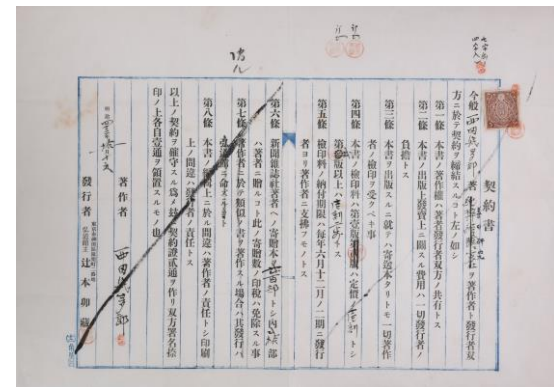 契約書
今般西田幾多郎著 ヲ著作者ト發行者双
方ニ於テ契約ヲ締結スルコト左ノ如シ
第一條 本書ノ著作權ハ著者發行者双方ノ共有トス
第二條 本書ノ出版上發賣上ニ關スル費用ハ一切發行者ノ
負擔トス
第三條 本書ヲ出版スルニ就テハ寄贈本タリトモ一切著作
者ノ檢印ヲ受クベキ事
第四條 本書ノ檢印料ハ第壹版 定價ノ トシ
版以上ハ トス
第五條 檢印料ノ納付期限ハ毎年六月十二月ノ二期ニ發行
者ヨリ著作者ニ支拂フモノトス
第六條 新聞雜誌社著者ヘノ寄贈本 部トシ内 部
ハ著者ニ贈ルコト此ノ寄贈數ノ印税ハ免除スル事
第七條 著作者ニ於テ類似ノ書ヲ著作スル場合ハ其發行ハ
第八條 本書ノ編輯上ニ於ル間違ハ著作者ノ責任トシ印刷
上ノ間違ハ發行者ノ責任トス
以上ノ契約ヲ確守スル爲メ玆ニ契約證貳通ヲ作リ双方署名捺
印ノ上各自壹通ヲ領置スルモノ也
明治
著作者 西田幾多郎
發行者 辻本卯藏